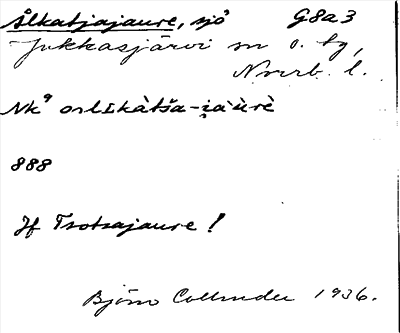 Ålkatjajaure, sjö G8a3
Jukkasjärvi sn o. tg,
Norrb. l.
Nk⁹
888
Jf Tsotsajaure!
Björn Collinder 1936.